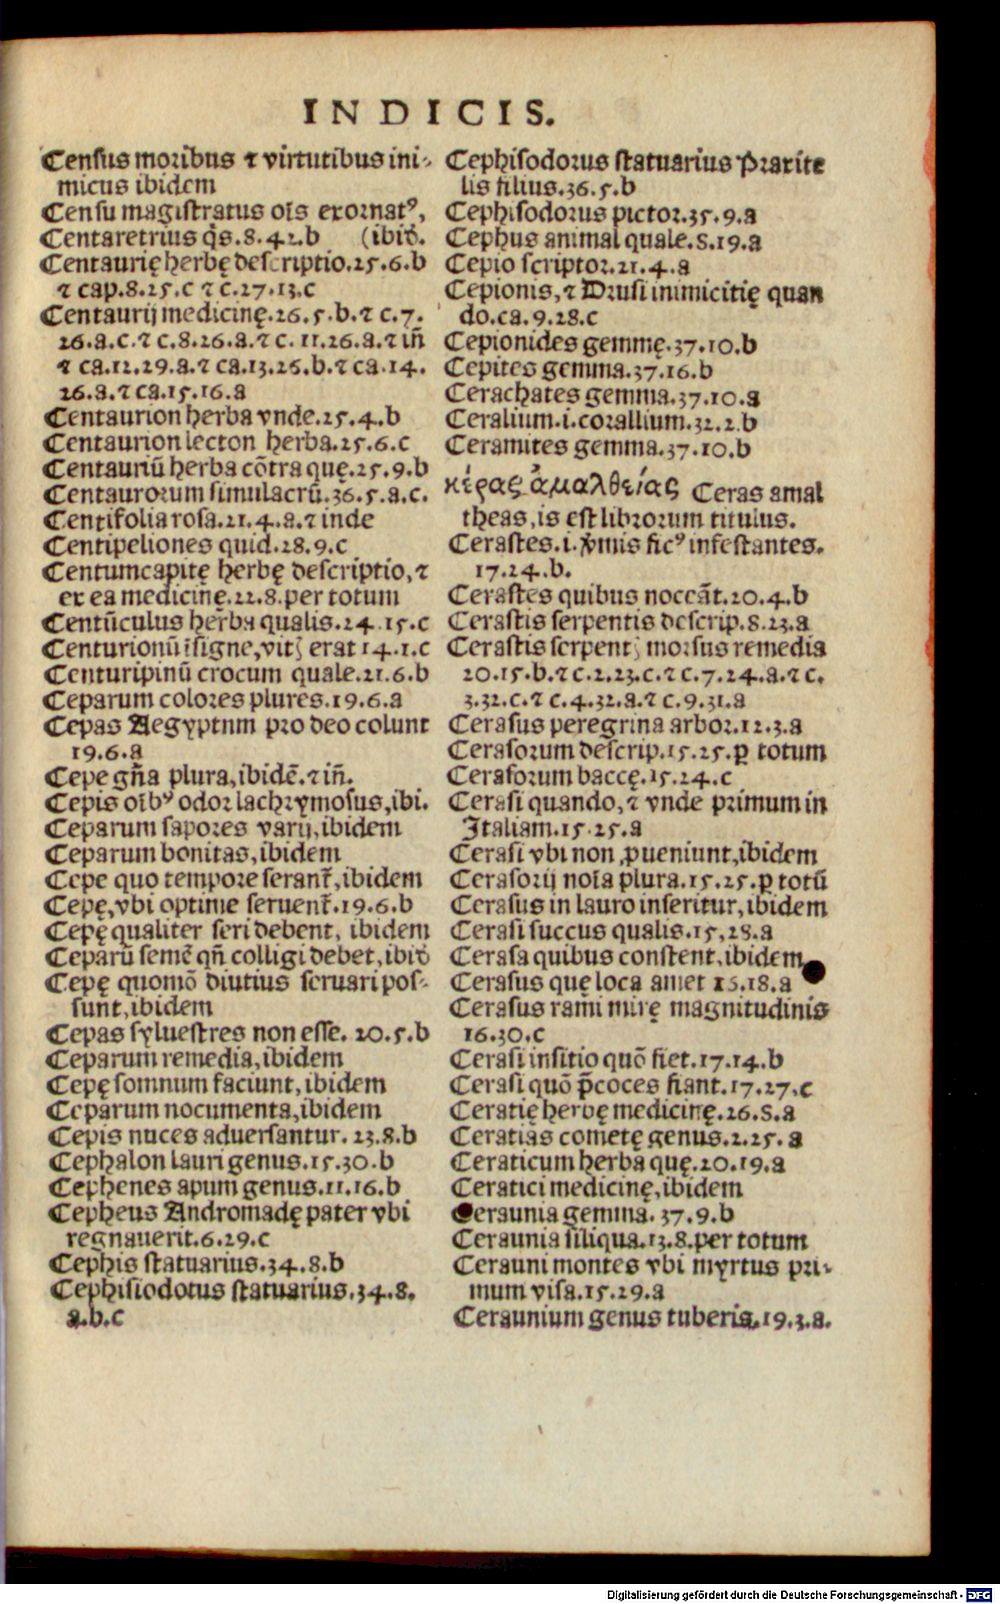 INDICIS.
Census moribus ⁊ virtutibus ini-
micus ibidem
Censu magistratus oīs exornatꝰ,
Centaretrius q̇s.8.42.b (ibiđ.
Centaurię herbę descriptio.25.6.b
⁊ cap.8.25.c ⁊ c.27.13.c
Centaurij medicinę.26.5.b.⁊ c.7.
26.a.c.⁊ c.8.26.a.⁊ c.11.26.a.⁊ iñ
⁊ ca.12.29.a.⁊ ca.13.26.b.⁊ ca.14.
26.a.⁊ ca.15.16.a
Centaurion herba vnde.25.4.b
Centaurion lecton herba.25.6.c
Centauriū herba cōtra quę.25.9.b
Centaurorum simulacrū.36.5.a.c.
Centifolia rosa.21.4.a.⁊ inde
Centipeliones quid.28.9.c
Centumcapitę herbę descriptio,⁊
ex ea medicinę.22.8.per totum
Centūculus herba qualis.24.15.c
Centurionū īsigne,vitꝫ erat 14.1.c
Centuripinū crocum quale.21.6.b
Ceparum colores plures.19.6.a
Cepas Aegyptnm pro deo colunt
19.6.a
Cepe gn̄a plura,ibidē.⁊ iñ.
Cepis oībꝰ odor lachrymosus,ibi.
Ceparum sapores varij,ibidem
Ceparum bonitas,ibidem
Cepe quo tempore serant̄,ibidem
Cepę,vbi optime seruent̄.19.6.b
Cepę qualiter seri debent, ibidem
Ceparū semē qñ colligi debet,ibiđ
Cepę quomō diutius seruari pos-
sunt,ibidem
Cepas syluestres non esse. 20.5.b
Ceparum remedia,ibidem
Cepę somnum faciunt,ibidem
Ceparum nocumenta,ibidem
Cepis nuces aduersantur. 23.8.b
Cephalon lauri genus.15.30.b
Cephenes apum genus.11.16.b
Cepheus Andromadę pater vbi
regnauerit.6.29.c
Cephis statuarius.34.8.b
Cephisiodotus statuarius.34.8.
a.b.c
Cephisodorus statuarius Praxite
lis filius.36.5.b
Cephisodorus pictor.35.9.a
Cephus animal quale.8.19.a
Cepio scriptor.21.4.a
Cepionis,⁊ Drusi inimicitię quan
do.ca.9.28.c
Cepionides gemmę.37.10.b
Cepites gemma.37.16.b
Cerachates gemma.37.10.a
Ceralium.i.corallium.32.2.b
Ceramites gemma.37.10.b
κέρας ἀμαλθείας Ceras amal
theas,is est librorum titulus.
Cerastes.i.v̄mis ficꝰ infestantes.
17.24.b.
Cerastes quibus noceāt.20.4.b
Cerastis serpentis descrip.8.23.a
Cerastis serpentꝫ morsus remedia
20.15.b.⁊ c.2.23.c.⁊ c.7.24.a.⁊ c.
3.32.c.⁊ c.4.32.a.⁊ c.9.31.a
Cerasus peregrina arbor.12.3.a
Cerasorum descrip.15.25.ꝑ totum
Cerasorum baccę.15.24.c
Cerasi quando,⁊ vnde primum in
Italiam.15.25.a
Cerasi vbi non ꝓueniunt,ibidem
Cerasorij noīa plura.15.25.ꝑ totū
Cerasus in lauro inseritur,ibidem
Cerasi succus qualis.15,28.a
Cerasa quibus constent,ibidem
Cerasus quę loca amet 16.18.a
Cerasus rami mirę magnitudinis
16.30.c
Cerasi insitio quō fiet.17.14.b
Cerasi quō p̄coces fiant.17.27.c
Ceratię herbę medicinę.26.8.a
Ceratias cometę genus.2.25.a
Ceraticum herba quę.20.19.a
Ceratici medicinę,ibidem
Ceraunia gemma.37.9.b
Ceraunia siliqua.13.8.per totum
Cerauni montes vbi myrtus pri-
mum visa.15.29.a
Ceraunium genus tuberis.19.3.a.
Digitalisierung gefördert durch die Deutsche Forschungsgemeinschaft - DFG